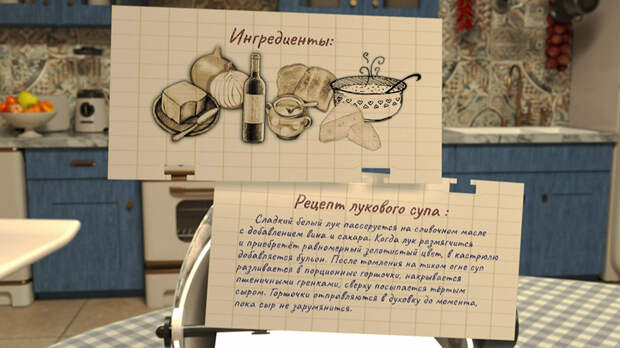 Ингредиенты:
Рецепт лукового супа :
Сладкий белый лук пассеруется на сливочном масле
с добавлением вина и сахара. Когда лук размягчится
и приобретёт равномерный золотистый цвет, в кастрюлю
добавляется бульон. После томления на тихом огне суп
разливается в порционные горшочки, накрывается
пшеничными гренками, сверху посыпается тёртым
сыром. Горшочки отправляются в духовку до момента,
пока сыр не зарумянится.